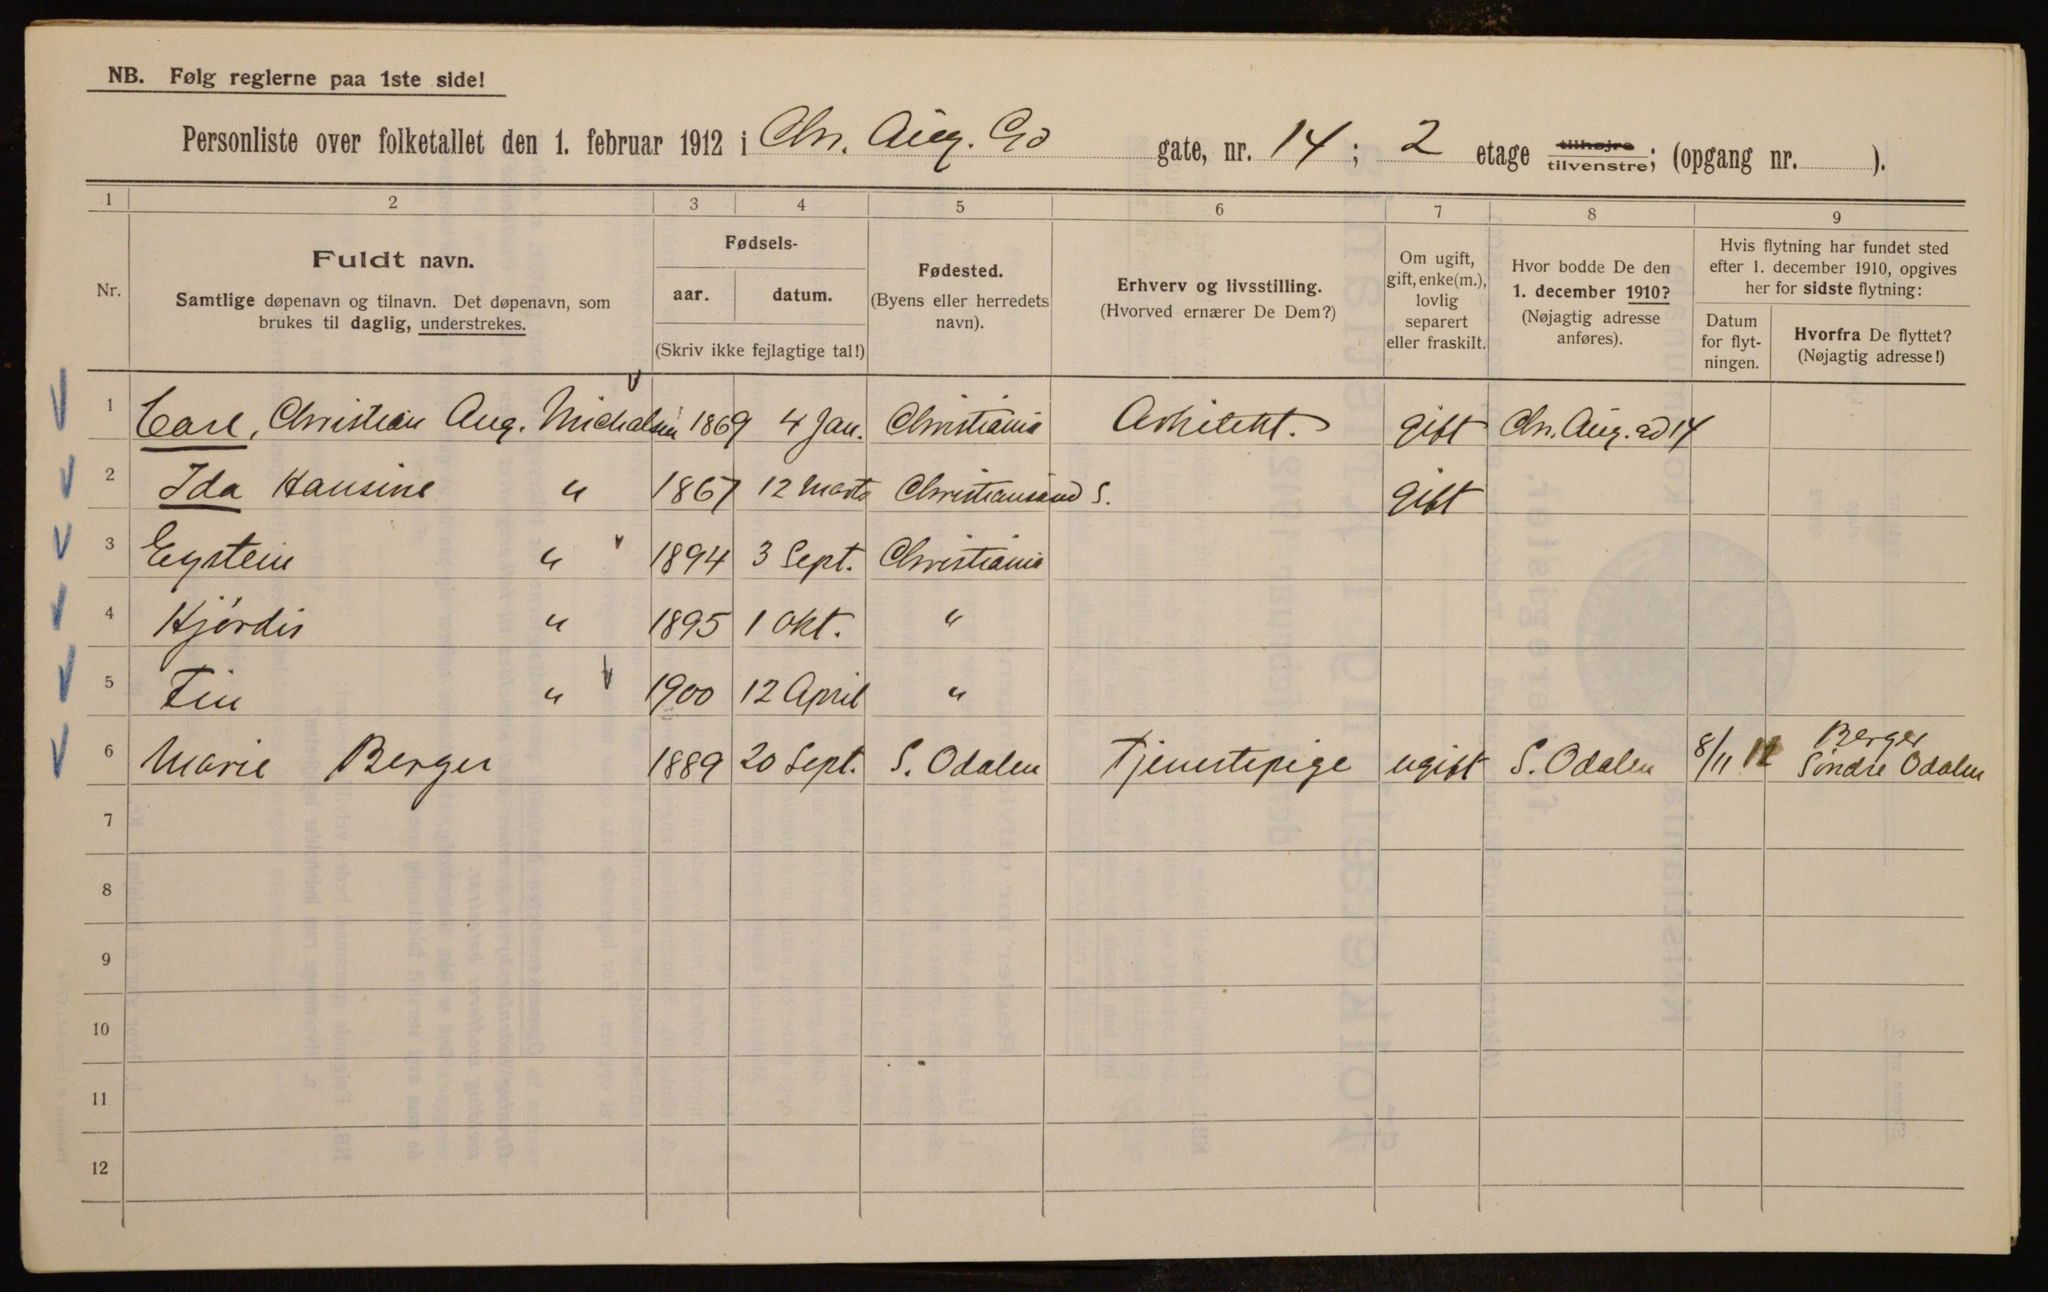 NB. Følg reglerne paa 1ste side!
Personliste over folketallet den 1. februar 1912 i Chr. Aug. Gd gate, nr. 14; 2 etage tilhøjre tilvenstre; (opgang nr. ).
1 2 3 4 5 6 7 8 9
Nr.
Fuldt navn.
Samtlige døpenavn og tilnavn. Det døpenavn, som
brukes til daglig, understrekes.
Fødsels-
aar. datum.
(Skriv ikke fejlagtige tal!)
Fødested.
(Byens eller herredets
navn).
Erhverv og livsstilling.
(Hvorved ernærer De Dem?)
Om ugift,
gift, enke(m.),
lovlig
separert
eller fraskilt.
Hvor bodde De den
1. december 1910?
(Nøjagtig adresse
anføres).
Hvis flytning har fundet sted
efter 1. december 1910, opgives
her for sidste flytning:
Datum
for flyt-
ningen.
Hvorfra De flyttet?
(Nøjagtig adresse!)
1 Carl, Christian Aug. Michalsen 1869 4 Jan. Christiania Arkitekt. gift Chr. Aug. gd 14
2 Ida Hansine " 1867 12 Marts Christiansand S. gift
3 Eystein " 1894 3 Sept. Christiania
4 Hjørdis " 1895 1 Okt. "
5 Fin " 1900 12 April "
6 Marie Berger 1889 20 Sept. S. Odalen Tjenestepige ugift S. Odalen 8/11 11 Berger
Søndre Odalen
7
8
9
10
11
12